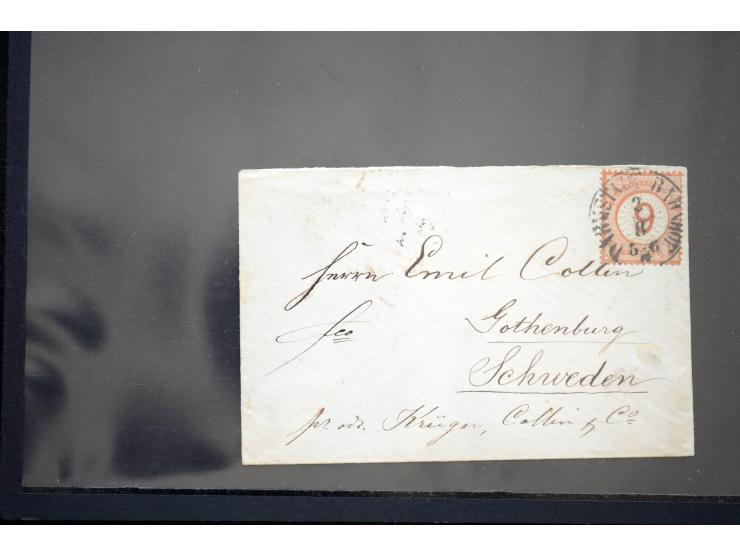 DARMSTADT BAHNHOF
2
8
5-6
9
Herrn Emil Collin
fco
Gothenburg
Schweden
pr. adr. Krüger, Collin & Co